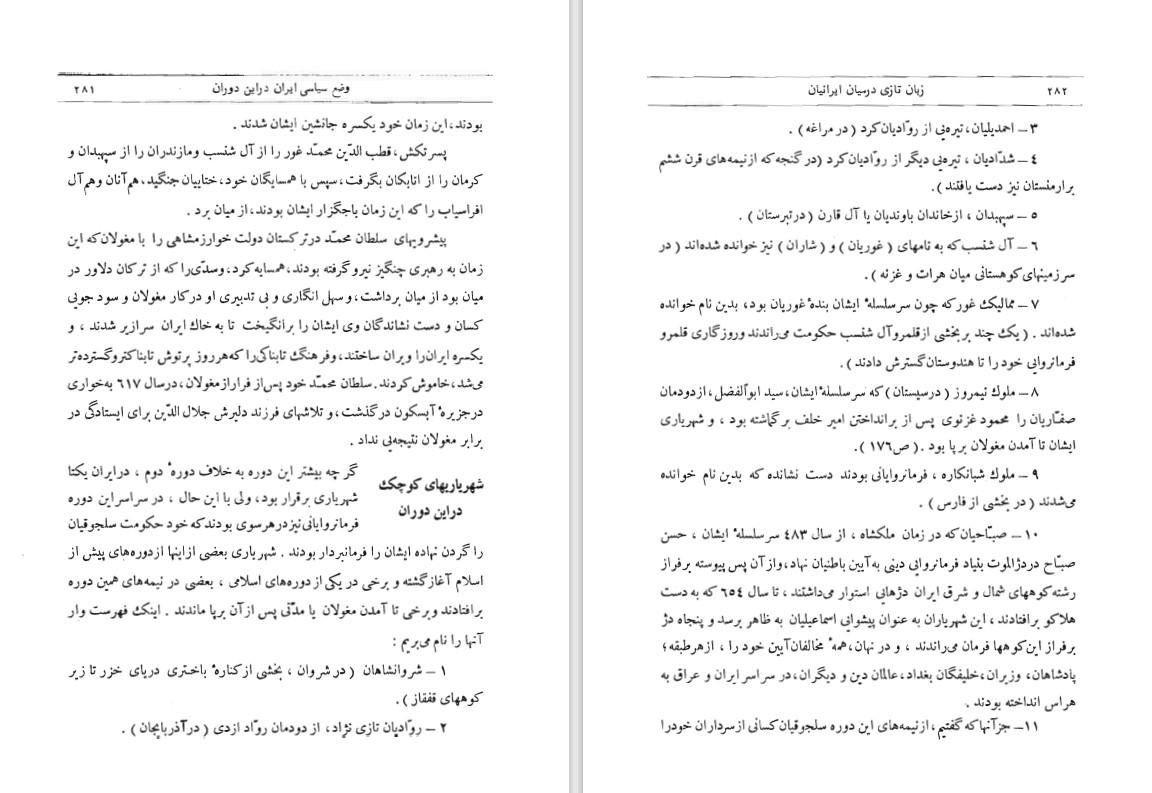 وضع سیاسی ایران دراین دوران
۲۸۱
بودند، این زمان خود یکسره جانشین ایشان شدند .
پسر تکش، قطب الدّین محمّد غور را از آل شنسب و مازندران را از سپهبدان و
کرمان را از اتابکان بگرفت، سپس با همسایگان خود، ختاییان جنگید، هم آنان و هم آل
افراسیاب را که این زمان باجگزار ایشان بودند، از میان برد .
پیشرویهای سلطان محمّد در ترکستان دولت خوارزمشاهی را با مغولان که این
زمان به رهبری چنگیز نیرو گرفته بودند، همسایه کرد، و سدّی را که از ترکان دلاور در
میان بود از میان برداشت، و سهل انگاری و بی تدبیری او در کار مغولان و سود جویی
کسان و دست نشاندگان وی ایشان را برانگیخت تا به خاك ایران سرازیر شدند ، و
یکسره ایران را ویران ساختند، و فرهنگ تابناکی را که هر روز پرتوش تابناکتر و گسترده‌تر
می‌شد، خاموش کردند. سلطان محمّد خود پس از فرار از مغولان، در سال ٦١٧ به خواری
در جزیرهٔ آبسکون درگذشت، و تلاشهای فرزند دلیرش جلال الدّین برای ایستادگی در
برابر مغولان نتیجه‌یی نداد .
شهریاریهای کوچک
دراین دوران
گر چه بیشتر این دوره به خلاف دورهٔ دوم ، در ایران یکتا
شهریاری برقرار بود، ولی با این حال ، در سراسر این دوره
فرمانروایانی نیز در هر سوی بودند که خود حکومت سلجوقیان
را گردن نهاده ایشان را فرمانبردار بودند . شهریاری بعضی از اینها از دوره‌های پیش از
اسلام آغاز گشته و برخی در یکی از دوره‌های اسلامی ، بعضی در نیمه‌های همین دوره
برافتادند و برخی تا آمدن مغولان یا مدّتی پس از آن برپا ماندند . اینك فهرست وار
آنها را نام می‌بریم :
١ – شروانشاهان (در شروان ، بخشی از کنارهٔ باختری دریای خزر تا زیر
کوههای قفقاز ) .
٢ – روّادیان تازی نژاد، از دودمان روّاد ازدی ( در آذربایجان ) .
زبان تازی در میان ایرانیان
۲۸۲
٣ – احمدیلیان، تیره‌یی از روّادیان کرد ( در مراغه ) .
٤ – شدّادیان ، تیره‌یی دیگر از روّادیان کرد (در گنجه که از نیمه‌های قرن ششم
بر ارمنستان نیز دست یافتند ) .
٥ – سپهبدان ، از خاندان باوندیان یا آل قارن (در تبرستان ) .
٦ – آل شنسب که به نامهای (غوریان) و (شاران) نیز خوانده شده‌اند (در
سرزمینهای کوهستانی میان هرات و غزنه ) .
٧ – ممالیک غور که چون سرسلسلهٔ ایشان بندهٔ غوریان بود، بدین نام خوانده
شده‌اند . ( یک چند بر بخشی از قلمرو آل شنسب حکومت می‌راندند و روزگاری قلمرو
فرمانروایی خود را تا هندوستان گسترش دادند ) .
٨ – ملوك نیمروز ( در سیستان ) که سرسلسلهٔ ایشان، سید ابوالفضل، از دودمان
صفّاریان را محمود غزنوی پس از برانداختن امیر خلف برگماشته بود ، و شهریاری
ایشان تا آمدن مغولان برپا بود . ( ص١٧٦ ) .
٩ – ملوك شبانکاره ، فرمانروایانی بودند دست نشانده که بدین نام خوانده
می‌شدند ( در بخشی از فارس ) .
١٠ – صبّاحیان که در زمان ملکشاه ، از سال ٤٨٣ سرسلسلهٔ ایشان ، حسن
صبّاح در دژ الموت بنیاد فرمانروایی دینی به آیین باطنیان نهاد، و از آن پس پیوسته بر فراز
رشته کوههای شمال و شرق ایران دژهایی استوار می‌داشتند ، تا سال ٦٥٤ که به دست
هلاکو برافتادند ، این شهریاران به عنوان پیشوایی اسماعیلیان به ظاهر بر سد و پنجاه دژ
بر فراز این کوهها فرمان می‌راندند ، و در نهان، همهٔ مخالفان آیین خود را ، از هر طبقه؛
پادشاهان، وزیران، خلیفگان بغداد، عالمان دین و دیگران، در سراسر ایران و عراق به
هراس انداخته بودند .
١١ – جز آنها که گفتیم، از نیمه‌های این دوره سلجوقیان کسانی از سرداران خود را